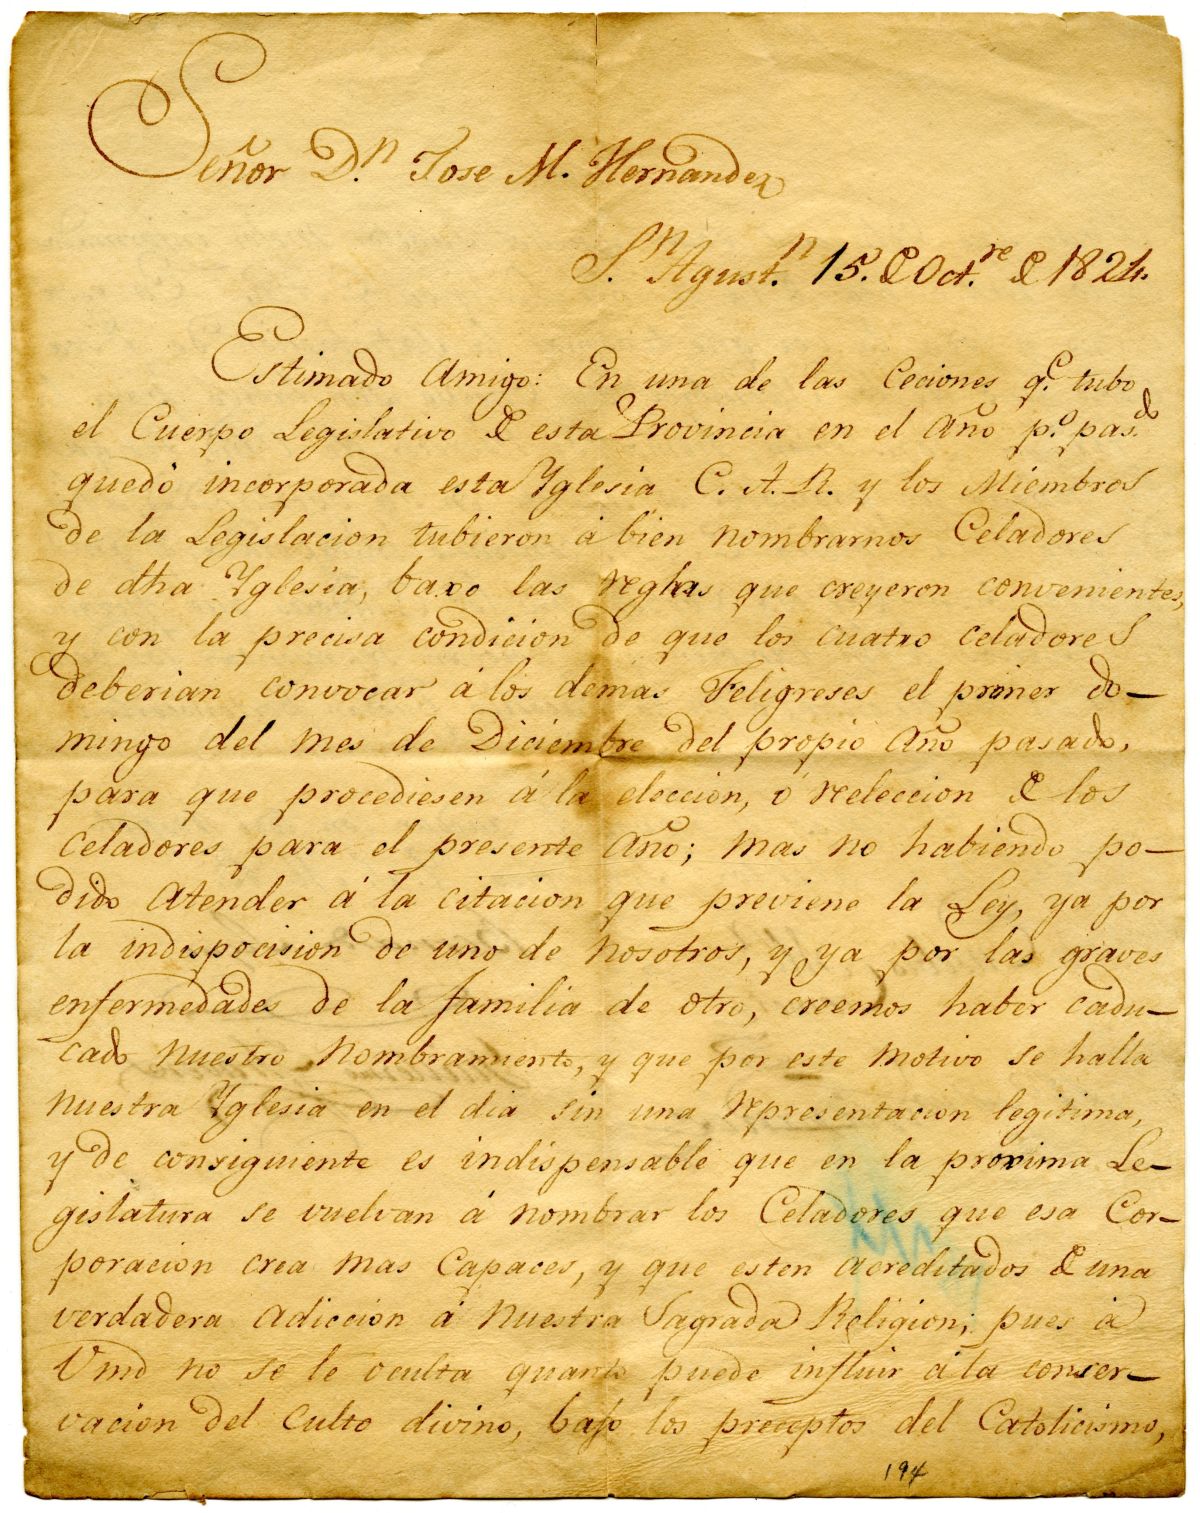 Señor D.n Jose M. Hernandez
S.n Agust.n 15. de Oct.re de 1824.
Estimado Amigo: En una de las Ceciones q.e tubo
el Cuerpo Legislativo de esta Provincia en el Año p.o pas.do
quedó incorporada esta Yglesia C. A. R. y los Miembros
de la Legislacion tubieron á bien nombrarnos Celadores
de dha Yglesia, baxo las reglas que creyeron convenientes,
y con la precisa condicion de que los cuatro celadores
deberian convocar á los demas Feligreses el primer do-
mingo del mes de Diciembre del propio Año pasado,
para que procediesen á la eleccion, ó releccion de los
Celadores para el presente Año; mas no habiendo po-
dido atender á la citacion que previene la Ley, ya por
la indispocision de uno de nosotros, y ya por las graves
enfermedades de la familia de otro, creemos haber cadu-
cado nuestro nombramiento, y que por este motivo se halla
nuestra Yglesia en el dia sin una representacion legitima,
y de consiguiente es indispensable que en la proxima Le-
gislatura se vuelvan á nombrar los Celadores que esa Cor-
poracion crea mas capaces, y que esten acreditados de una
verdadera adiccion á nuestra Sagrada Religion; pues á
Vmd no se le oculta quanto puede influir á la conser-
vacion del culto divino, bajo los preceptos del Catolicismo,
194